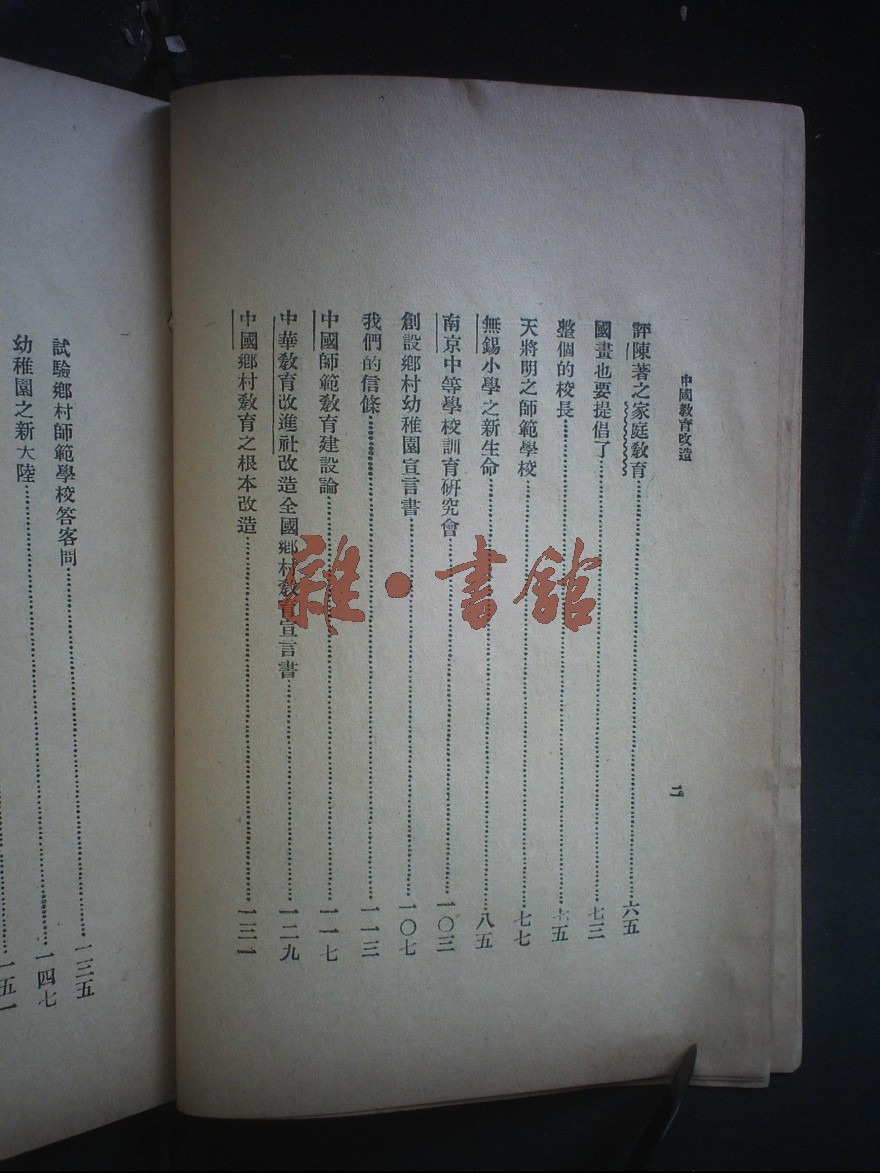 中國教育改造
二
評陳著之家庭教育……六五
國畫也要提倡了……七三
整個的校長……七五
天將明之師範學校……七七
無錫小學之新生命……八五
南京中等學校訓育研究會……一〇三
創設鄉村幼稚園宣言書……一〇七
我們的信條……一一三
中國師範教育建設論……一一七
中華教育改進社改造全國鄉村教育宣言書……一二九
中國鄉村教育之根本改造……一三一
試驗鄉村師範學校答客問……一三五
幼稚園之新大陸……一四七
……一五一
雜·書館